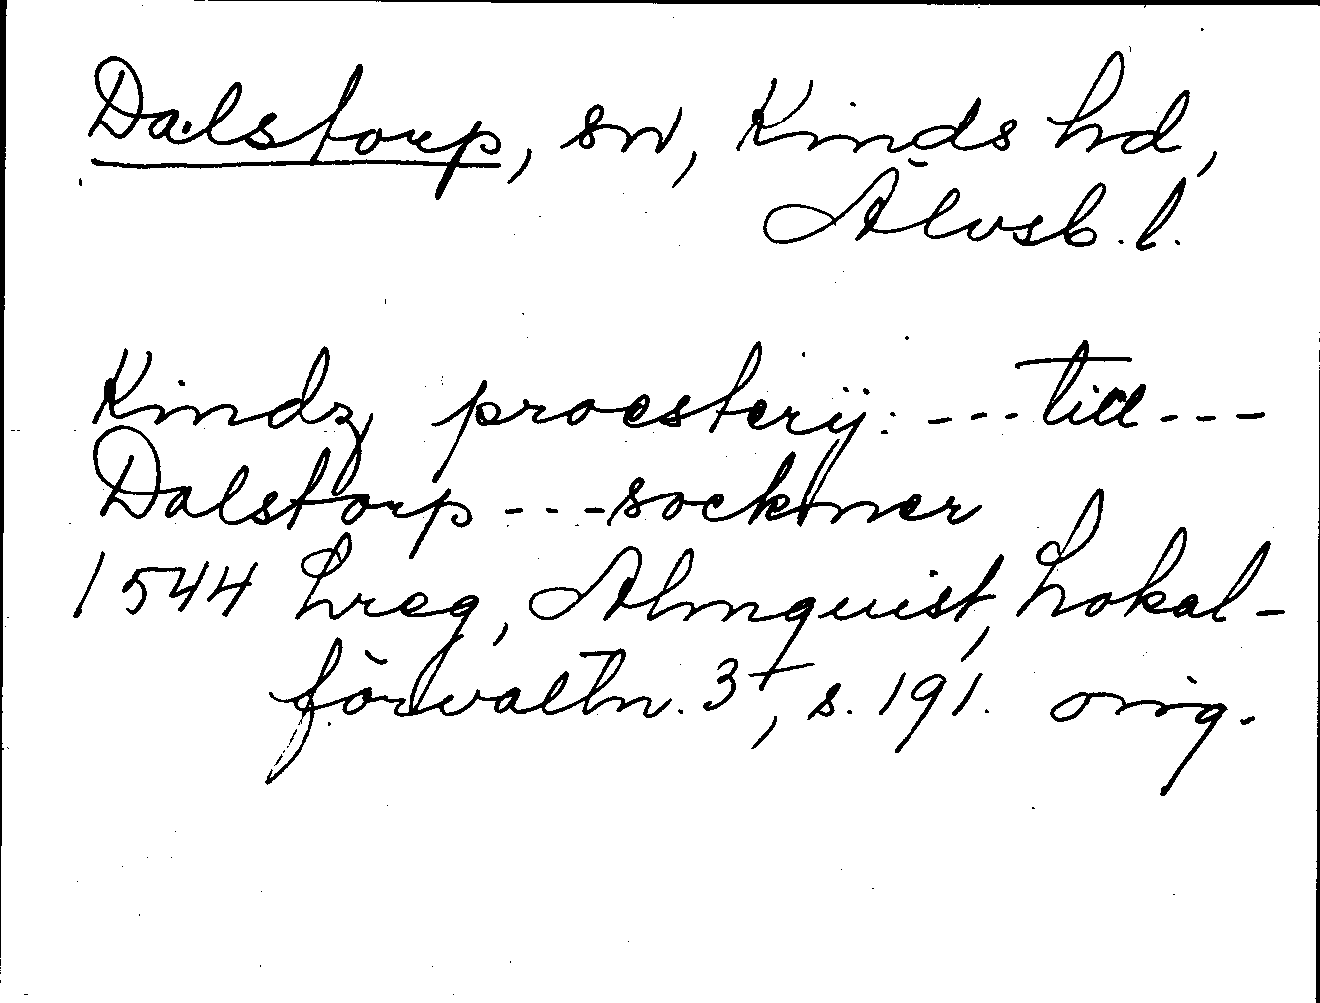 Dalstorp, sn, Kinds hd,
Älvsb. l.
Kindz proesterij: --- till ---
Dalstorp --- sockner
1544 Lreg, Almquist, Lokal-
förvaltn. 3+, s. 191. orig.